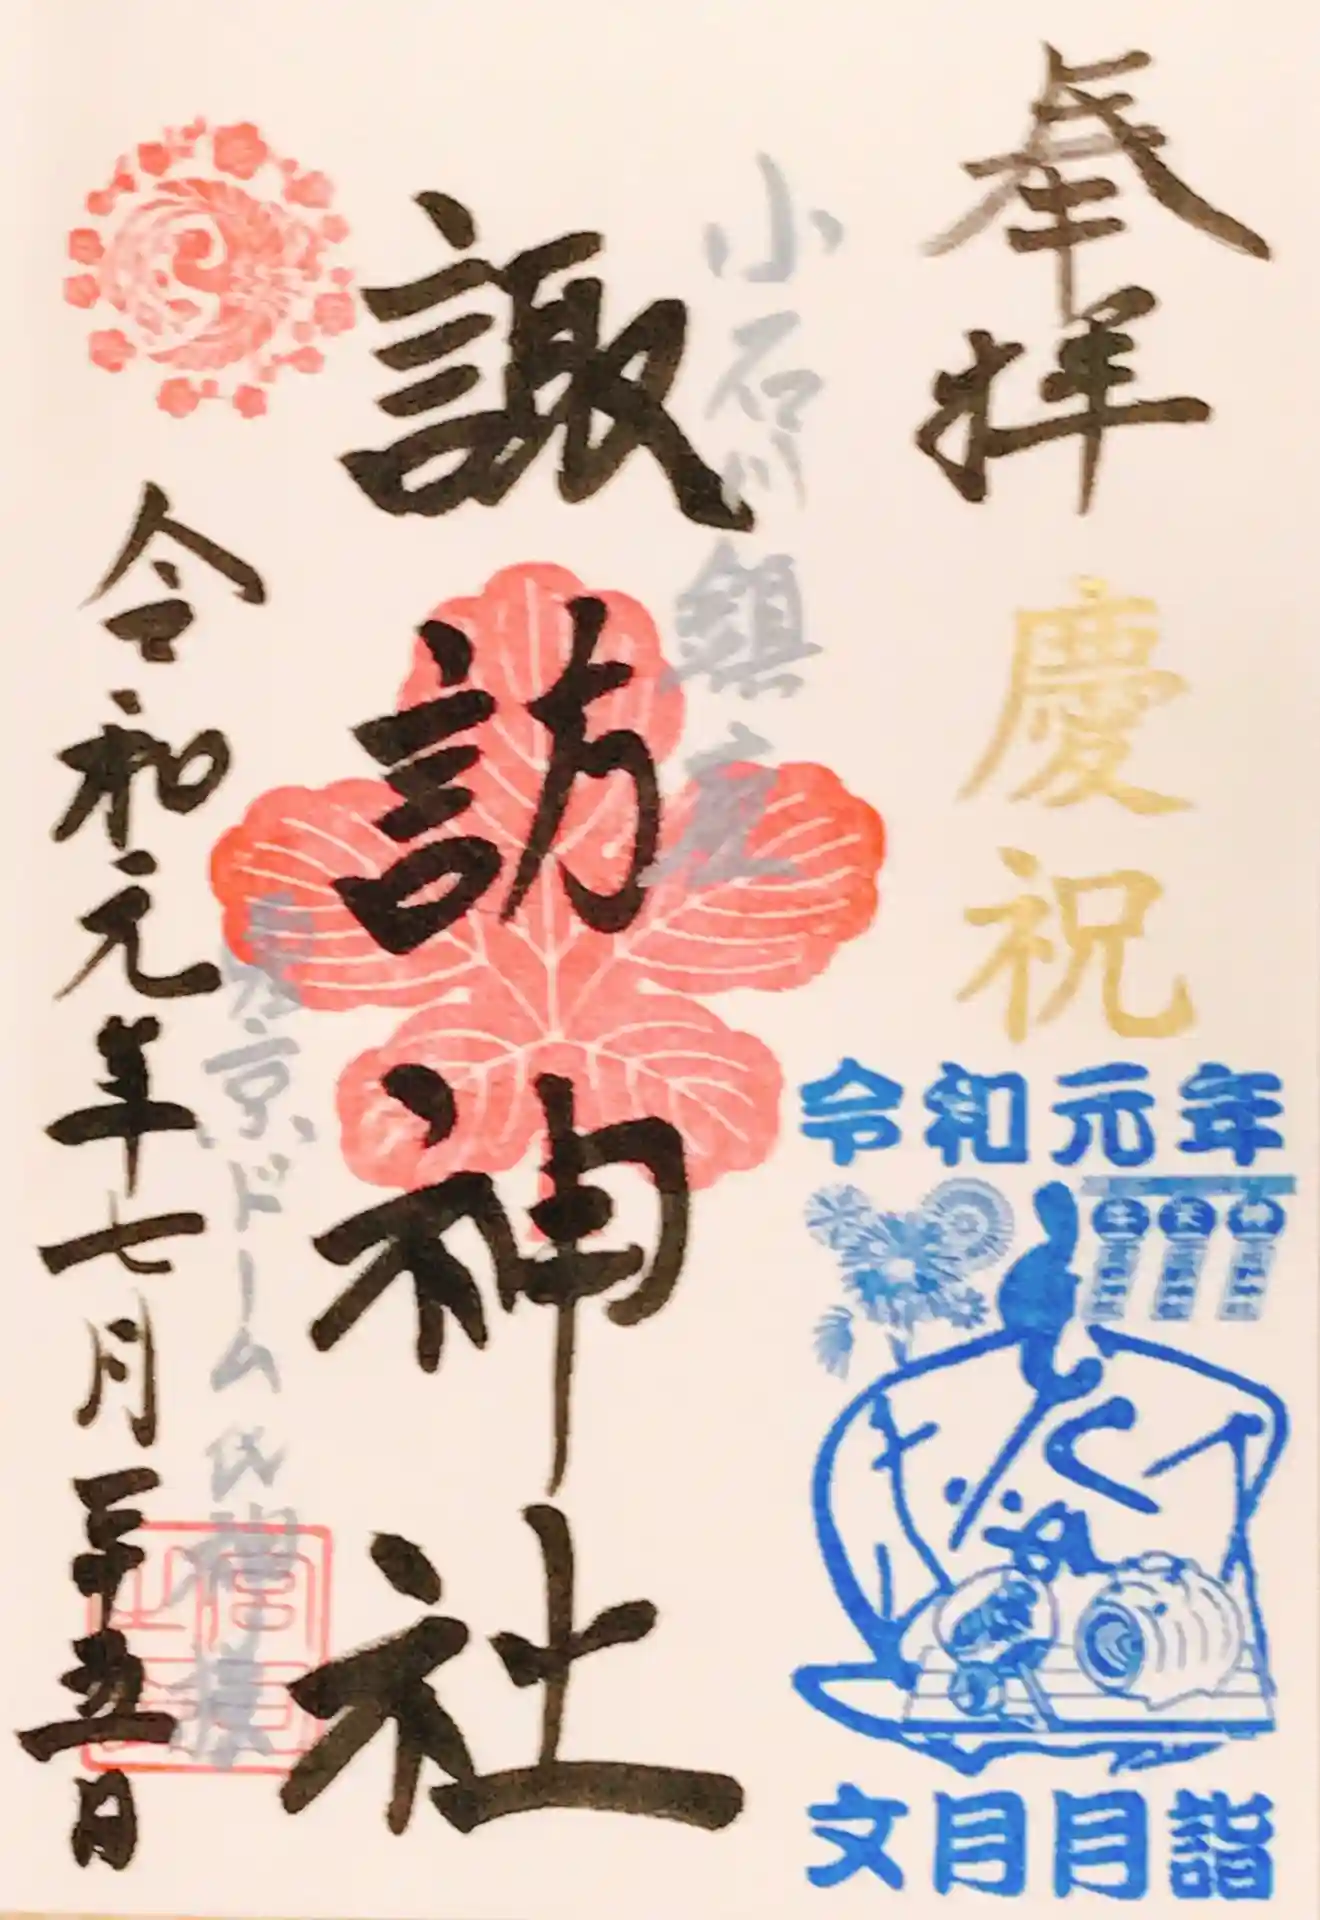 奉拝
慶祝
令和元年
文月月詣
小石川鎮座
諏訪神社
東京ドーム氏神様
令和元年七月二十五日